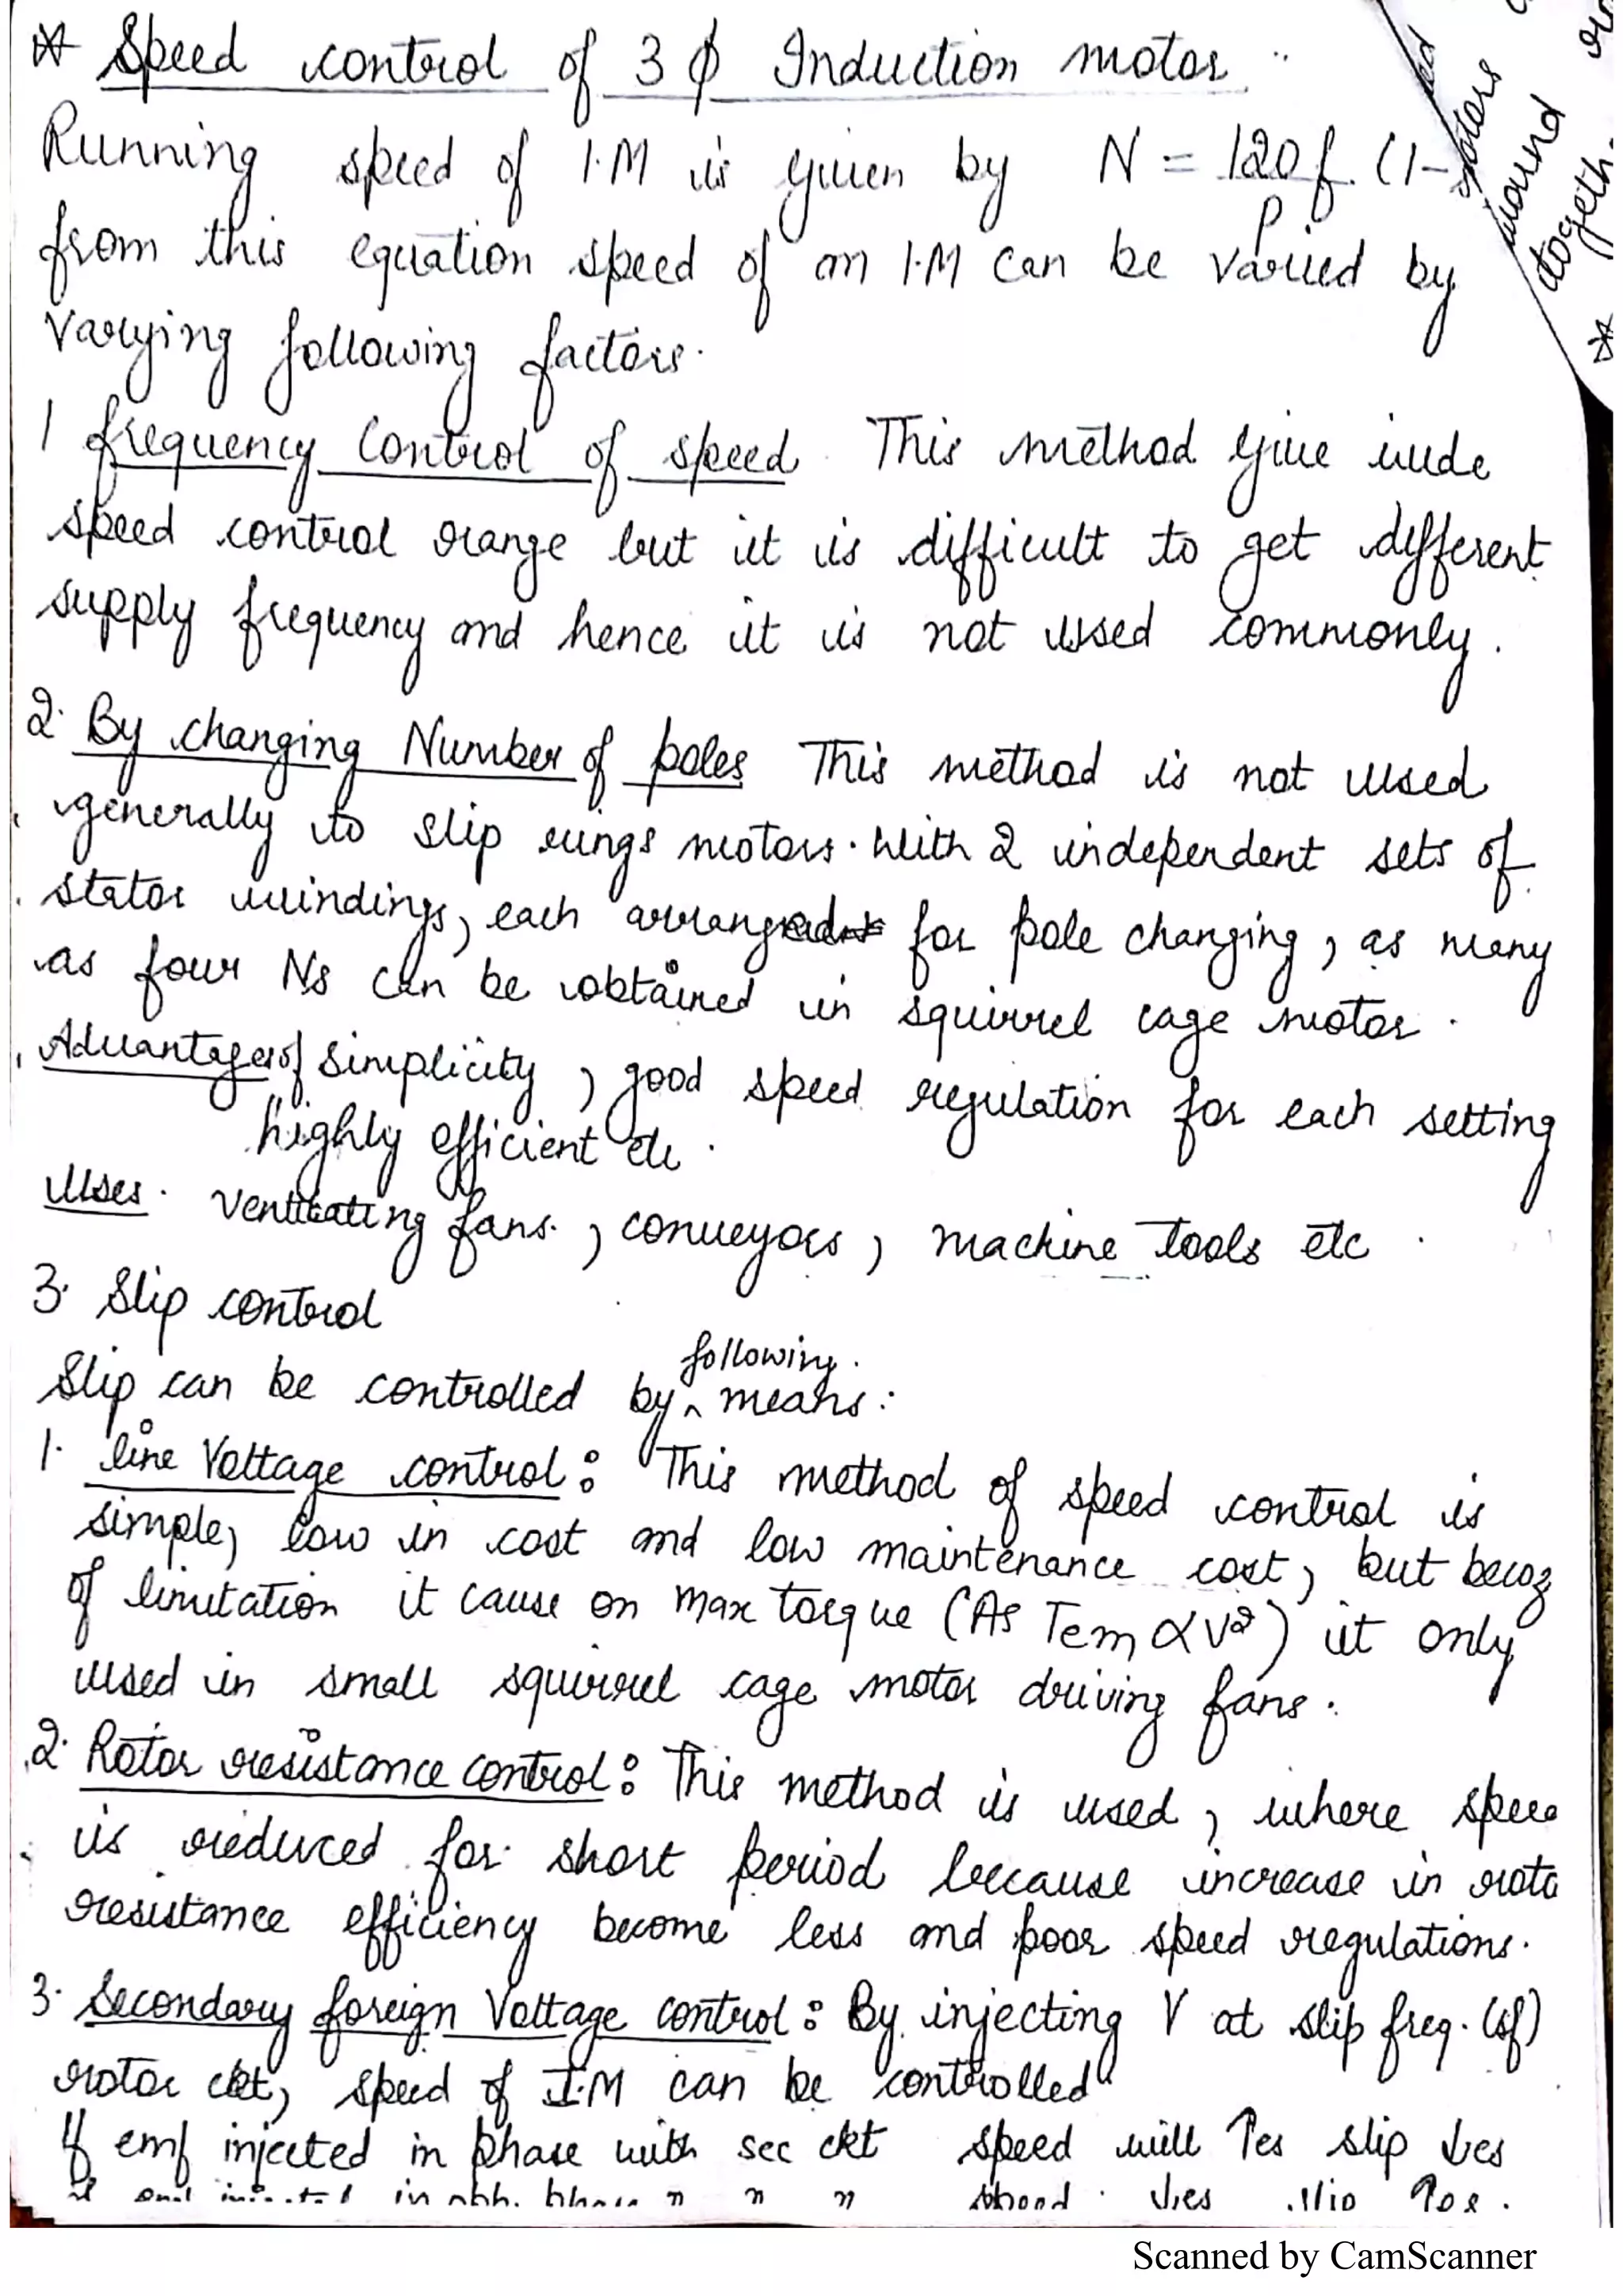 * Speed control of 3 ϕ Induction motor
Running speed of I.M is given by N = 120f (1-
P
from this equation speed of an I.M can be varied by
varying following factors.
1 frequency control of speed. This method give wide
speed control range but it is difficult to get different
supply frequency and hence it is not used commonly.
2. By changing Number of poles This method is not used
generally to slip rings motors. With 2 independent sets of
stator windings, each arranged for pole changing, as many
as four Ns can be obtained in squirrel cage motor.
Advantages of simplicity, good speed regulation for each setting
highly efficient etc.
Uses. Ventilating fans., conveyors, machine tools etc.
3. Slip control
Slip can be controlled by following means:
1. line Voltage control: This method of speed control is
simple, low in cost and low maintenance cost, but becoz
of limitation it cause on max torque (As Tem ∝ V²) it only
used in small squirrel cage motor driving fans.
2. Rotor resistance control: This method is used, where spee
is reduced for short period because increase in roto
resistance efficiency become less and poor speed regulations.
3. Secondary foreign Voltage control: By injecting V at slip freq. (sf)
rotor ckt, speed of I.M can be controlled
If emf injected in phase with sec ckt speed will ↑es slip ↓es
in opp. phase " " " speed ↓es slip ↑es.
wound
togeth.
*
Scanned by CamScanner